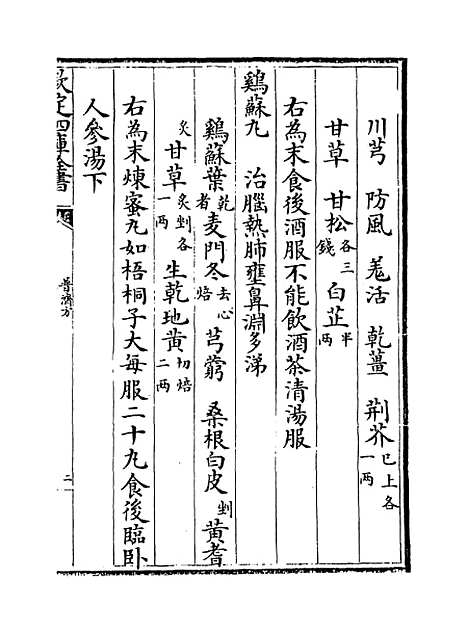 川芎　防風　羗活　乾薑　荆芥已上各一两
甘草　甘松各三錢　白芷半两
右為末食後酒服不能飲酒茶清湯服
鷄蘇丸　治腦熱肺壅鼻淵多涕
鷄蘇葉乾者麦門冬去心焙　芎藭　桑根白皮剉　黄耆
炙甘草炙剉各一两　生乾地黄切焙二两
右為末煉蜜丸如梧桐子大每服二十丸食後臨卧
人參湯下
欽定四庫全書
普濟方